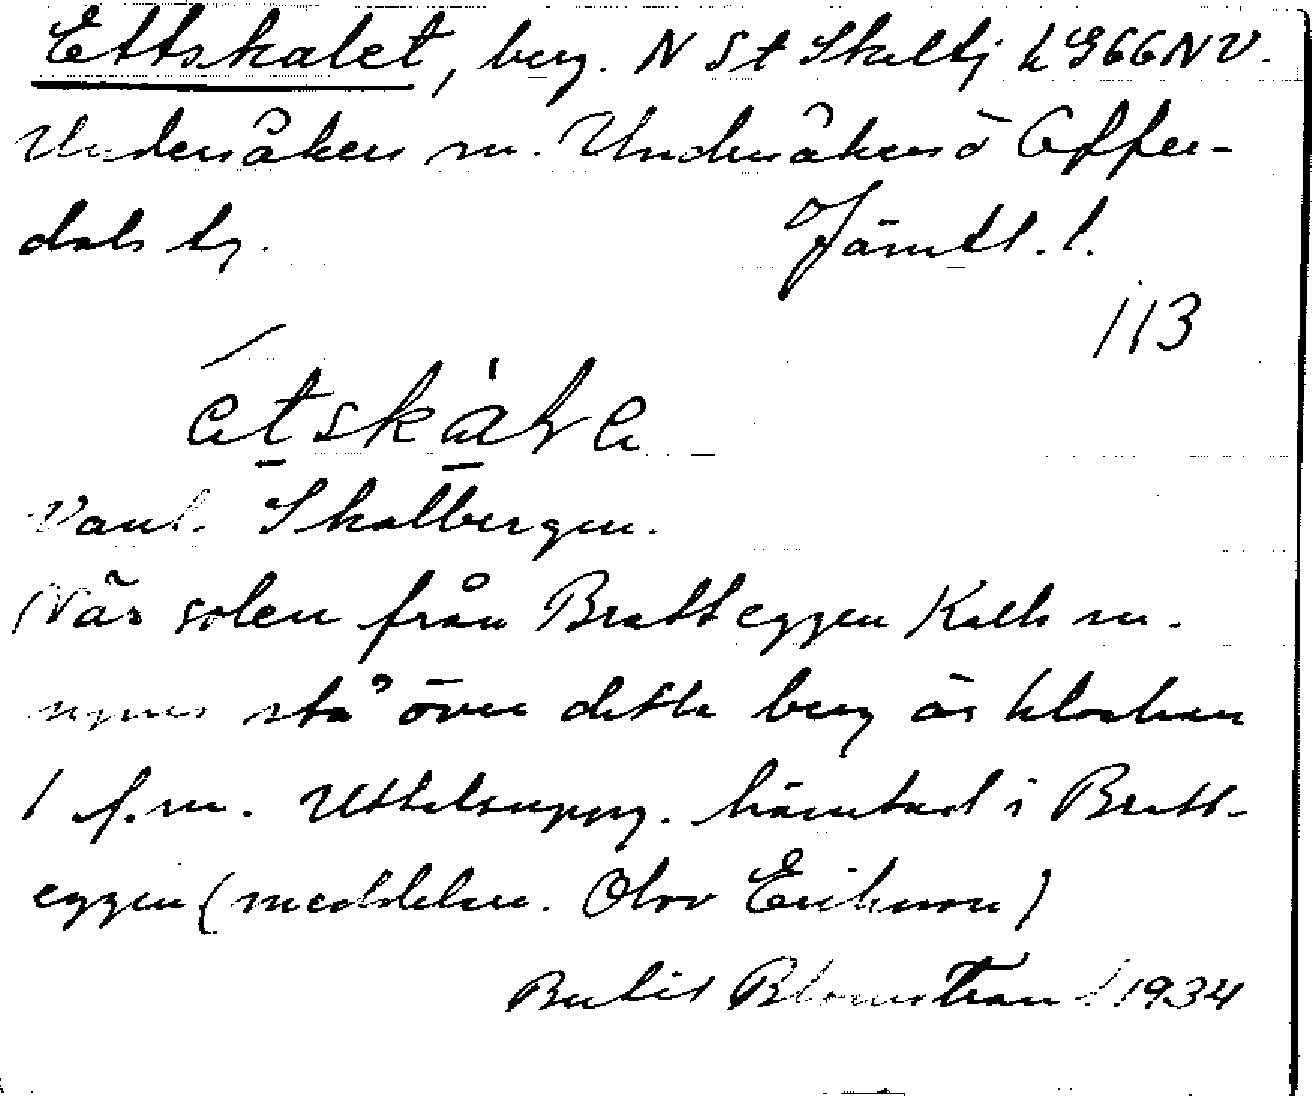 Ettskalet, berg. N St Skaltj k G66NV.
Undersåkers sn. Undersåkers o Offer-
dals tg. Jämtl. l.
113
étskàlɐ
Vanl. Skalbergen.
När solen från Bratteggen Kalls sn.
synes stå över detta berg är klockan
1 f.m. Uttalsuppg. hämtad i Bratt-
eggen (meddelare. Olov Erikson)
Bertil Blomstrand 1934